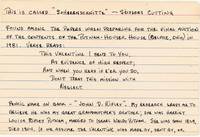 THIS IS CALLED "SCHERENSCHNITTE" – SCISSORS CUTTING
FOUND AMONG THE PAPERS WHEN PREPARING FOR THE FINAL AUCTION
OF THE CONTENTS OF THE HOUSE (
1981. VERSE READS:
THIS VALENTINE I SEND TO YOU,
AS EVIDENCE OF HIGH RESPECT;
AND WHEN YOU HEAR IT I DO,
DON'T TREAT THIS MISSION WITH
NEGLECT
PENCIL WORK ON BACK – "JOHN D. RIPLEY". MY RESEARCH WANTS ME TO
BELIEVE HE WAS MY GREAT GRANDMOTHER'S BROTHER. SHE WAS HARRIET
LOUISA RIPLEY , MARRIED TO ISAIAH . HE WAS BORN 1839,
DIED 1904. I ASSUME THE VALENTINE WAS MADE BY, SENT BY, OR